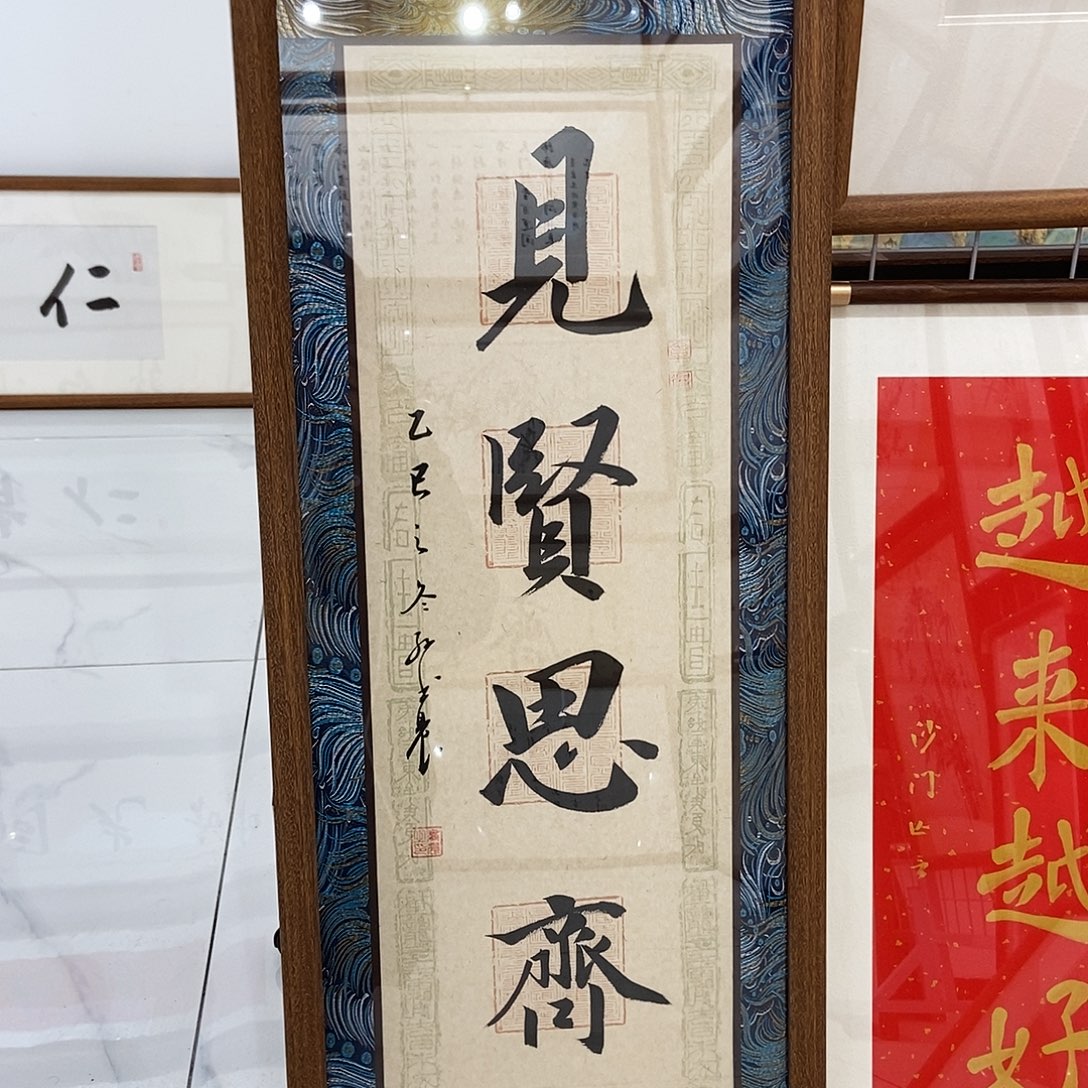 見賢思齊
乙巳之冬
仁
越来越好
沙门